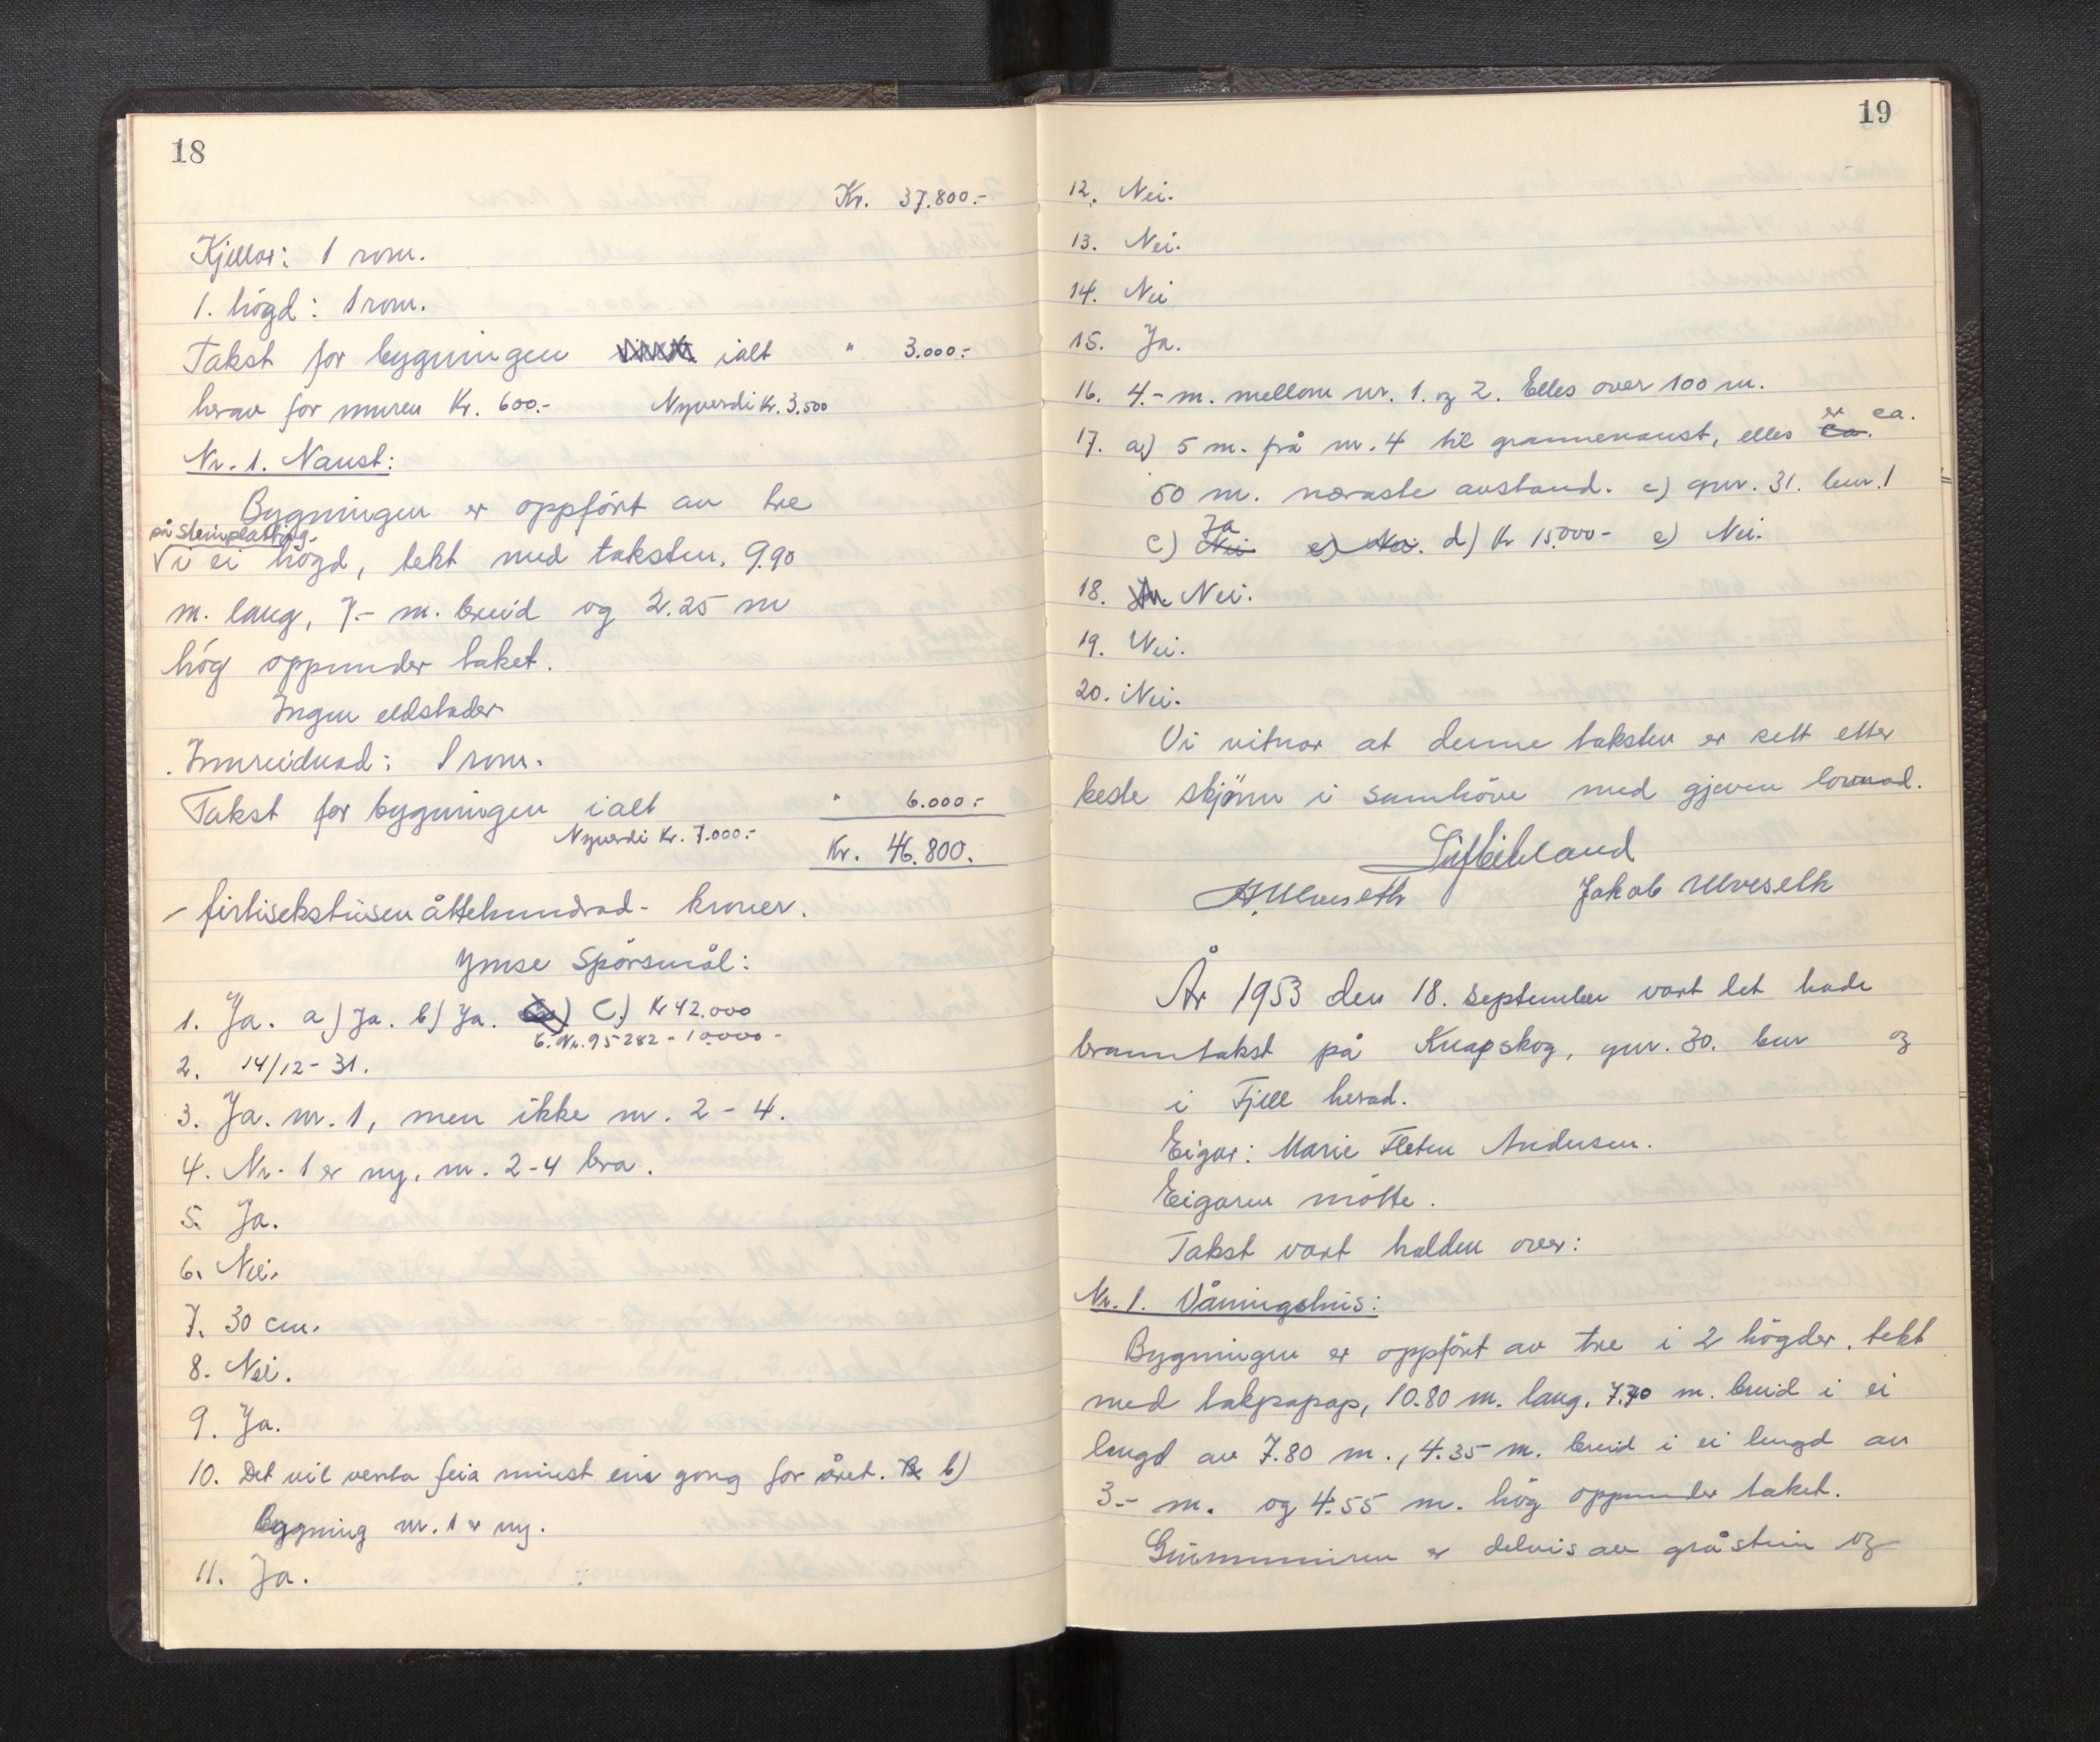 18
Kr. 37.800.-
Kjellar: 1 rom.
1. högd: 1 rom.
Takst for bygningen ialt " 3.000.-
herav for muren Kr. 600.- Nyverdi Kr. 3.500
Nr. 1. Naust:
Bygningen er oppfört av tre
på steinplatting.
i ei högd, tekt med takstein. 9.90
m. lang, 7.- m. breid og 2.25 m
hög oppunder taket.
Ingen eldstader
Innreidnad: 1 rom.
Takst for bygningen ialt " 6.000.-
Nyverdi Kr. 7.000.-
Kr. 46.800.
- förtisekstusen åttehundrad- kroner.
Ymse Spörsmål:
1. Ja. a) Ja. b) Ja. C.) Kr 42.000
Nr. 95282 - 10000 -
2. 14/12-31.
3. Ja. nr. 1, men ikke nr. 2-4.
4. Nr. 1 er ny. nr. 2-4 bra.
5. Ja.
6. Nei.
7. 30 cm.
8. Nei.
9. Ja.
10. Det vil verta feia minst ein gong for året. b)
Bygning nr. 1 er ny.
11. Ja.
19
12. Nei.
13. Nei.
14. Nei
15. Ja.
16. 4.- m. mellom nr. 1. og 2. Elles over 100 m.
er ca.
17. a) 5 m. frå nr. 4 til grannenaust, elles ca.
50 m. næraste avstand. c) gnr. 31. bnr. 1
Ja
c) Nei e) Nei. d) Kr 15.000- e) Nei.
18. Nei.
19. Nei.
20. Nei.
Vi vitnar at denne taksten er sett etter
beste skjönn i samhöve med gjeven lovnad.
A. Ulveseth Jakob Ulveseth
År 1953 den 18. september vart det halde
branntakst på Knapskog, gnr. 30. bnr og
i Fjell herad.
Eigar: Marie Fleten Andersen.
Eigaren mötte.
Takst vart halden over:
Nr. 1. Våningshus:
Bygningen er oppfört av tre i 2 högder. tekt
med takpapap, 10.80 m. lang. 7.70 m. breid i ei
lengd av 7.80 m., 4.35 m. breid i ei lengd av
3.- m. og 4.55 m. hög oppunder taket.
Grunnmuren er delvis av gråstein og